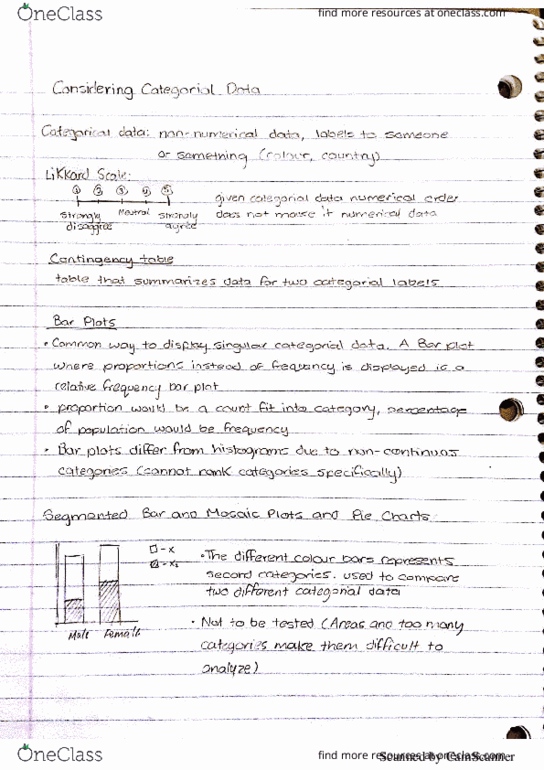 OneClass
find more resources at oneclass.com
Considering Categorial Data
Categorical data: non-numerical data, labels to someone
or something (colour, country)
Likkard Scale:
① ② ③ ④ ⑤
given categorial data numerical order
Strongly disagree Neutral strongly agree
does not make it numerical data
Contingency table
table that summarizes data for two categorial labels
Bar Plots
• Common way to display singular categorial data. A Bar plot
where proportions instead of frequency is displayed is a
relative frequency bar plot
• proportion would be a count fit into category, percentage
of population would be frequency
• Bar plots differ from histograms due to non-continuos
categories (cannot rank categories specifically)
Segmented Bar and Mosaic Plots and Pie Charts
□ - x
• The different colour bars represents
second categories. used to compare
two different categorial data
Male Female
• Not to be tested (Areas and too many
categories make them difficult to
analyze)
OneClass
find more resources at oneclass.com
Scanned by CamScanner